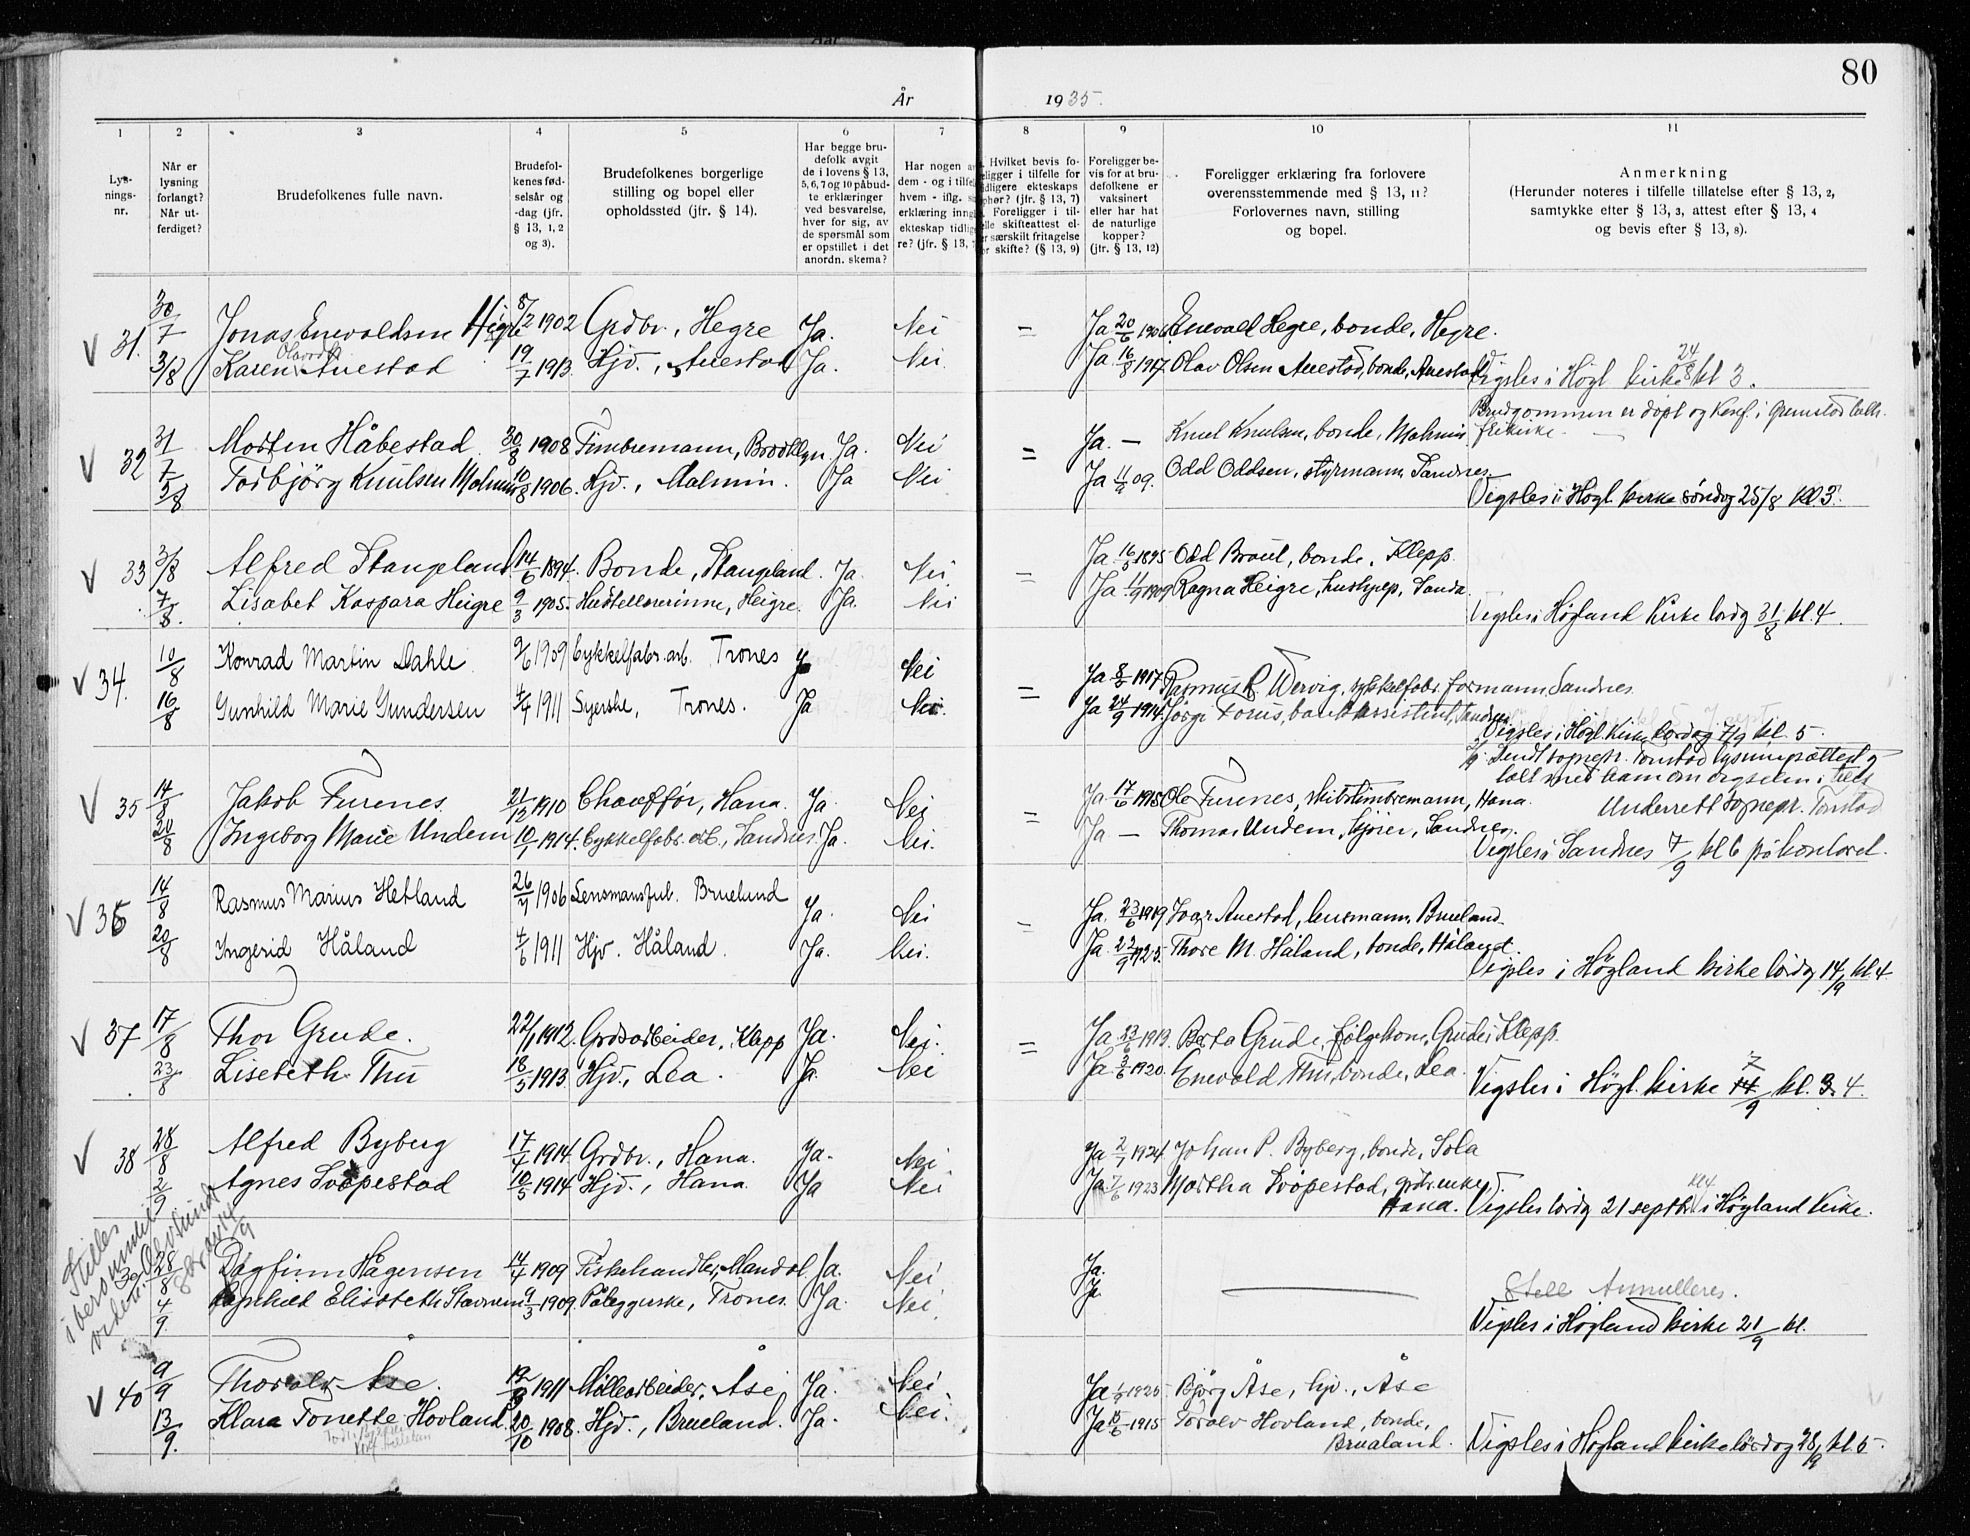 80
År 1935.
1 2 3 4 5 6 7 8 9 10 11
Lys-
nings-
nr.
Når er
lysning
forlangt?
Når ut-
ferdiget?
Brudefolkenes fulle navn.
Brudefol-
kenes fød-
selsår og
-dag (jfr.
§ 13, 1, 2
og 3).
Brudefolkenes borgerlige
stilling og bopel eller
opholdssted (jfr. § 14).
Har begge bru-
defolk avgit
de i lovens § 13,
5, 6, 7 og 10 påbud-
te erklæringer
ved besvarelse,
hver for sig, av
de spørsmål som
er opstillet i det
anordn. skema?
Har nogen a
dem - og i tilfel
hvem - iflg. s
erklæring inng
ekteskap tidlig
re? (jfr. § 13,
Hvilket bevis fo-
eligger i tilfelle for
idligere ekteskaps
phør? (jfr. § 13, 7)
Foreligger i til-
elle skifteattest el-
er særskilt fritagelse
or skifte? (§ 13, 9)
Foreligger be-
vis for at bru-
defolkene er
vaksinert
eller har hat
de naturlige
kopper?
(jfr. § 13, 12)
Foreligger erklæring fra forlovere
overensstemmende med § 13, 11?
Forlovernes navn, stilling
og bopel.
Anmerkning
(Herunder noteres i tilfelle tillatelse efter § 13, 2,
samtykke efter § 13, 3, attest efter § 13, 4
og bevis efter § 13, 8).
V 31. 30/7 Jonas Enevoldsen Higre 8/2 1902 Grdbr., Hegre Ja. Nei = Ja 20/6 Enevald Hegre, bonde, Hegre.
3/8 Karen Olavsd. Auestad 19/7 1913. Hjv., Auestad Ja. Nei. Ja 16/8 1917. Olav Olsen Auestad, bonde, Auestad
Vigsles i Högl kirke 24/8 kl 3.
Brudgommen er døpt og konf. i Grimstad luth. frikirke.
V 32 31/7 Morten Håbestad 30/8 1908 Timbremann, Brooklyn. Ja. Nei = Ja. — Knut Knutsen, bonde, Malmin
5/8 Torbjörg Knutsen Malmin 10/8 1906. Hjv., Malmin. Ja Nei Ja 11/9 09. Odd Oddsen, styrmann, Sandnes
Vigsles i Högl. kirke söndag 25/8 kl 3.
V 33 3/8 Alfred Stangeland 14/6 1894. Bonde, Stangeland. Ja. Nei = Ja. 16/6 1895 Odd Braut, bonde, Klepp.
7/8. Lisabet Kaspara Heigre 9/3 1905. Hustellærerinne, Heigre. Ja. Nei Ja 11/9 1909 Ragna Heigre, hushjelp, Sanda.
Vigsles i Högland Kirke lördg 31/8 kl. 4.
V 34. 10/8 Konrad Martin Dahle 2/6 1909 Cykkelfabr. arb. Trones Ja Nei = Ja 8/8 1917 Rasmus R. Wervig, sykkelfabr. formann, Sandnes.
16/8 Gunhild Marie Gundersen 4/4 1911 Syerske, Trones. Ja Nei. Ja 24/9 1914. Jörgi Forus, bankassistent, Sandnes
Vigsles i Högl. Kirke lördag 7/9 kl. 5.
Sendt sognepr. Tonstad lysningsattest og talt med ham om vigselen
Underrett sognepr. Tonstad
V 35 14/8 Jakob Furenes 21/12 1910 Chauffør, Hana. Ja. Nei = Ja 17/6 1915 Ole Furenes, skibstimbremann, Hana.
20/8 Ingeborg Marie Undem 10/1 1914. Cykkelfabr. arb., Sandnes. Ja. Nei. Ja — Thomas Undem, kjører, Sandnes.
Vigsles i Sandnes 7/9 kl 6 på kontoret.
V 36 14/8 Rasmus Marius Hetland 26/7 1906 Lensmansfub. Bruelund Ja. Nei - Ja. 23/6 1919 Ivar Auestad, lensmann, Brueland
20/8 Ingerid Håland 4/6 1911 Hjv. Håland. Ja. Nei. Ja. 22/9 1925. Thore M. Håland, bonde, Håland.
Vigsles i Högland kirke lördag 14/9 kl. 4.
V 37 17/8 Thor Grude. 22/1 1912. Grdsarbeider, Klepp Ja. Nei. = Ja 23/6 1913. Berta Grude, følgekone, Grude i Klepp.
23/8 Lisebeth Thu 18/5 1913 Hjv., Lea. Ja. Nei Ja 3/6 1920. Enevald Thu, bonde, Lea.
Vigsles i Högl. kirke 7/9 kl. 4.
V 38 28/8 Alfred Byberg 17/4 1914. Grdbr., Hana. Ja. Nei Ja 2/7 1924. Johan P. Byberg, bonde, Sola
2/9 Agnes Svåpestad 10/5 1914 Hjv., Hana. Ja Nei Ja 7/6 1923 Martha Svåpestad, grdbr.enke, Hana.
Vigsles lördg 21 septb. kl 4 i Högland Kirke.
Stilles i bero
39. 28/8 Dagfinn Hågensen 14/4 1909 Fiskehandler, Mandal. Ja. Nei Ja.
4/9. Ragnhild Elisabeth Stavnem 9/3 1909. Påleggerske, Trones. Ja. Nei. Ja
Annulleres.
Vigsles i Högland kirke 21/9 kl.
V 40 9/9 Thorolv Åse. 19/8 1911 Møllearbeider, Åse Ja. Nei. Ja 1925 Björg Åse, hjv., Åse
13/9. Klara Tonette Hovland 20/10 1908. Hjv., Brueland. Ja. Nei. Ja 15/6 1915 Torolv Hovland, bonde, Brualand.
Vigsles i Högland kirke lördag 28/9 kl. 5.